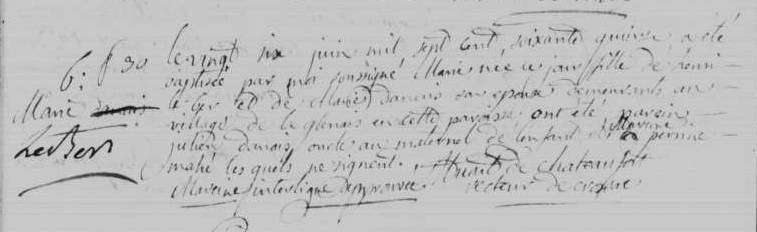 le vingt six juin mil sept cent soixante quinze a été
6: f 30 baptisée par moi soussigné Marie née ce jour fille de henri
Marie danais le ber et de Marie danais son epouse demeurants au
village de la glenais en cette paroisse ont été parein
Le Ber julien danais oncle au maternel de lenfant et Mareine perrine
mahé les quels ne signent. huart de chateaufort
Mareine interligne approuvée. recteur de